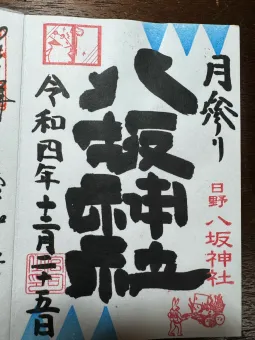 月参り
日野 八坂神社
八坂神社
令和四年十二月二十五日